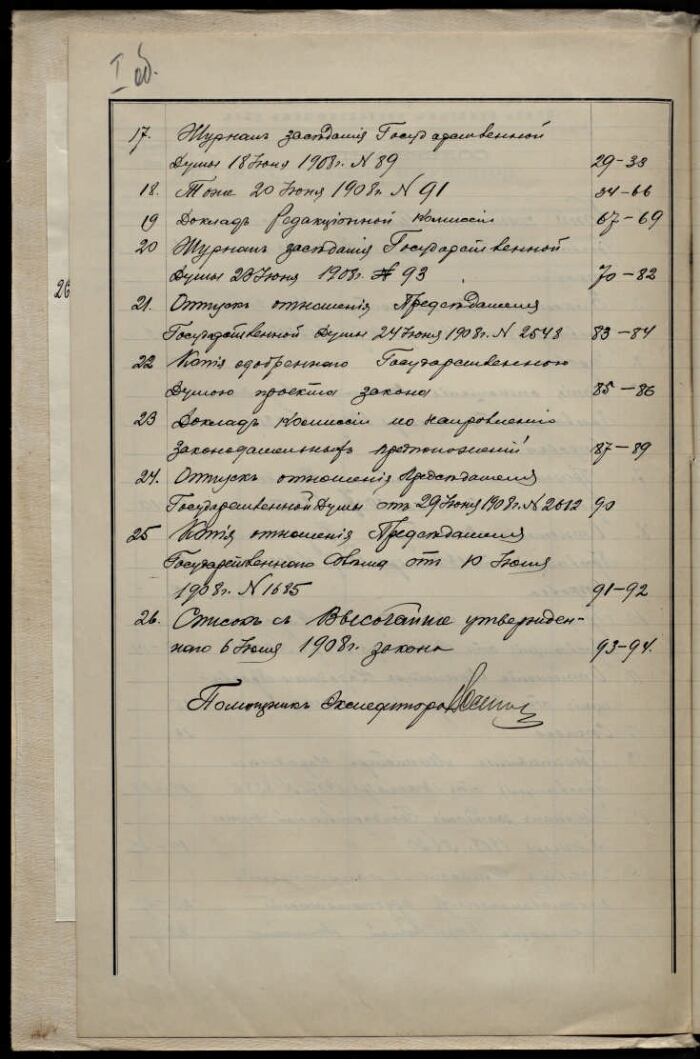 I об.
17. Журналъ засѣданія Государственной
Думы 18 Іюня 1908 г. N 89 29-33
18. Тоже 20 Іюня 1908 г. N 91 34-66
19 Докладъ Редакціонной Комиссіи 67-69
20 Журналъ засѣданія Государственной
Думы 23 Іюня 1908 г. № 93 70-82
21. Отпускъ отношенія Предсѣдателя
Государственной Думы 24 Іюня 1908 г. N 2548 83-84
22 Копія одобреннаго Государственною
Думою проекта закона 85-86
23 Докладъ Комиссіи по направленію
законодательныхъ предположеній 87-89
24. Отпускъ отношенія Предсѣдателя
Государственной Думы отъ 29 Іюня 1908 г. N 2612 90
25 Копія отношенія Предсѣдателя
Государственнаго Совѣта отъ 10 Іюля
1908 г. N 1685 91-92
26. Списокъ съ Высочайше утвержден-
наго 6 Іюля 1908 г. закона 93-94.
Помощникъ Экспедитора
26